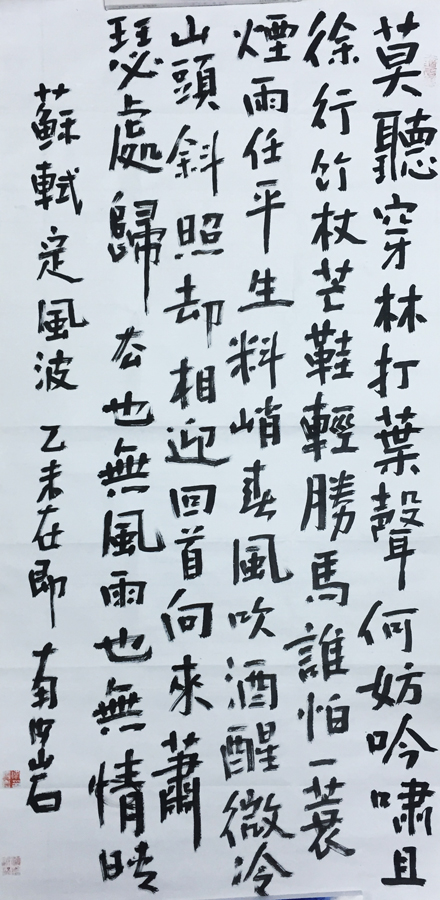 莫聽穿林打葉聲何妨吟嘯且
徐行竹杖芒鞋輕勝馬誰怕一蓑
煙雨任平生料峭春風吹酒醒微冷
山頭斜照却相迎回首向來蕭
瑟處歸去也無風雨也無情晴
蘇軾定風波乙未在即南山岩